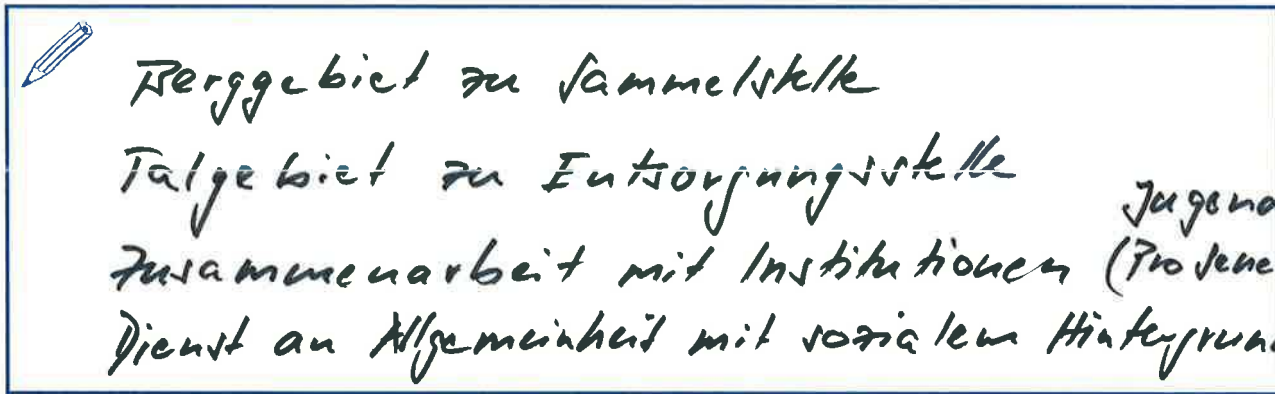 Berggebiet zu Sammelstelle
Talgebiet zu Entsorgungsstelle
Jugend
Zusammenarbeit mit Institutionen (Pro Sene
Dienst an Allgemeinheit mit sozialem Hintergrun